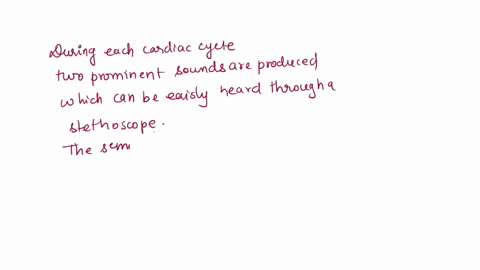 During each cardiac cycle
two prominent sounds are produced
which can be eaisly heard through a
stethoscope.
The sem